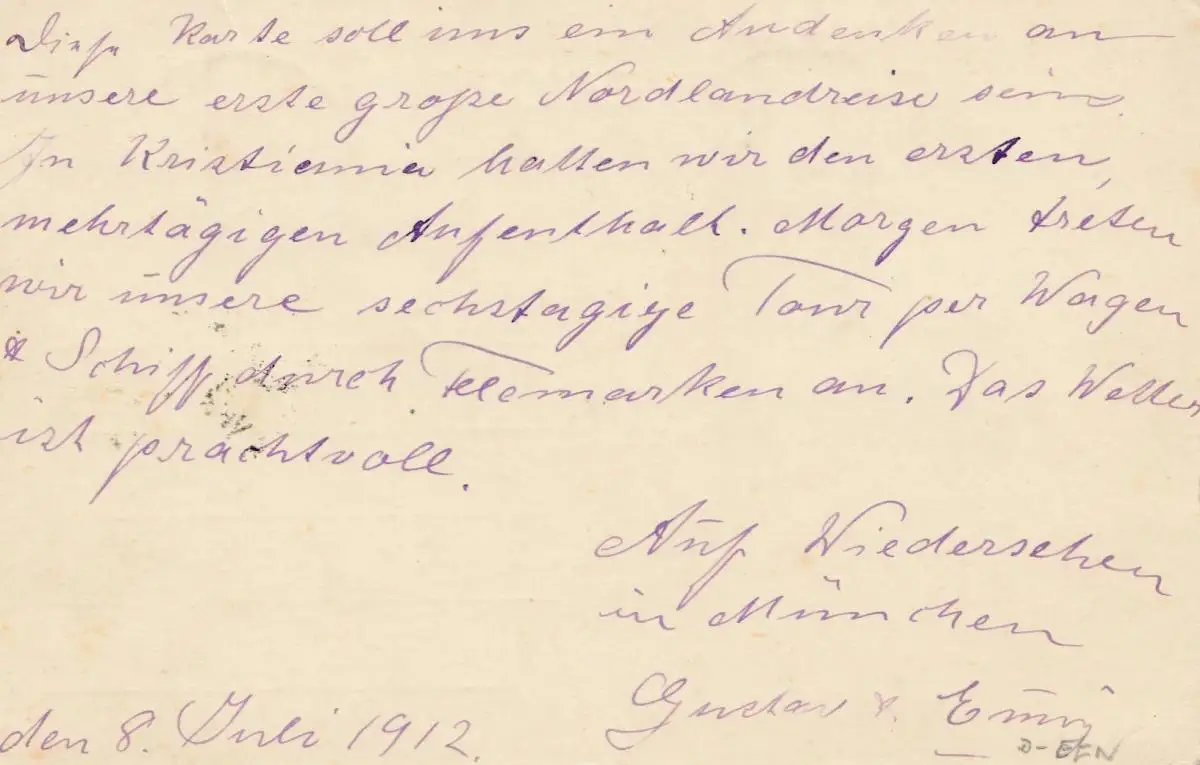 Diese Karte soll uns ein Andenken an
unsere erste große Nordlandreise sein.
In Kristiania hatten wir den ersten,
mehrtägigen Aufenthalt. Morgen treten
wir unsere sechstagige Tour per Wagen
& Schiff durch Telemarken an. Das Wetter
ist prachtvoll.
Auf Wiedersehen
in München
Gustav &
den 8. Juli 1912.